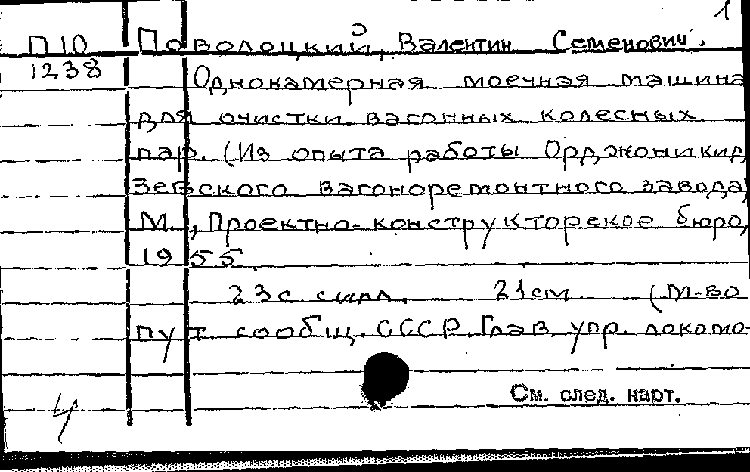 1
П10 Поволоцкий, Валентин Семенович.
1238 Однокамерная моечная машина
для очистки вагонных колесных
пар. (Из опыта работы Орджоникид
зевского вагоноремонтного завода)
М., Проектно-конструкторское бюро,
1955.
23с силл. 21см (М-во
пут сообщ. СССР. Глав упр. локомо-
См. след. карт.
4